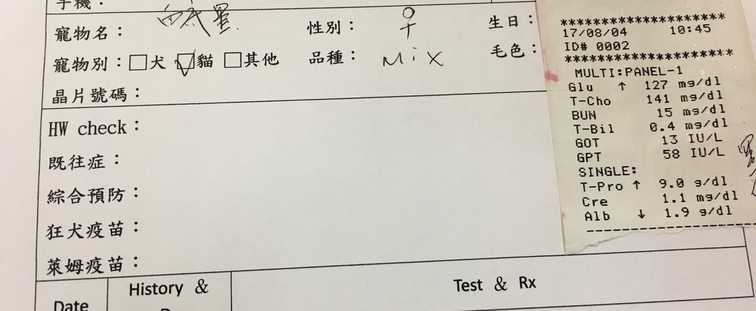 手機：
寵物名： 性別：♀ 生日：
寵物別：□犬 ☑貓 □其他 品種： Mix 毛色：
晶片號碼：
HW check：
既往症：
綜合預防：
狂犬疫苗：
萊姆疫苗：
Date History & Test & Rx
********************
17/08/04 10:45
ID# 0002
********************
MULTI:PANEL-1
Glu ↑ 127 mg/dl
T-Cho 141 mg/dl
BUN 15 mg/dl
T-Bil 0.4 mg/dl
GOT 13 IU/L
GPT 58 IU/L
SINGLE:
T-Pro ↑ 9.0 g/dl
Cre 1.1 mg/dl
Alb ↓ 1.9 g/dl
--------------------